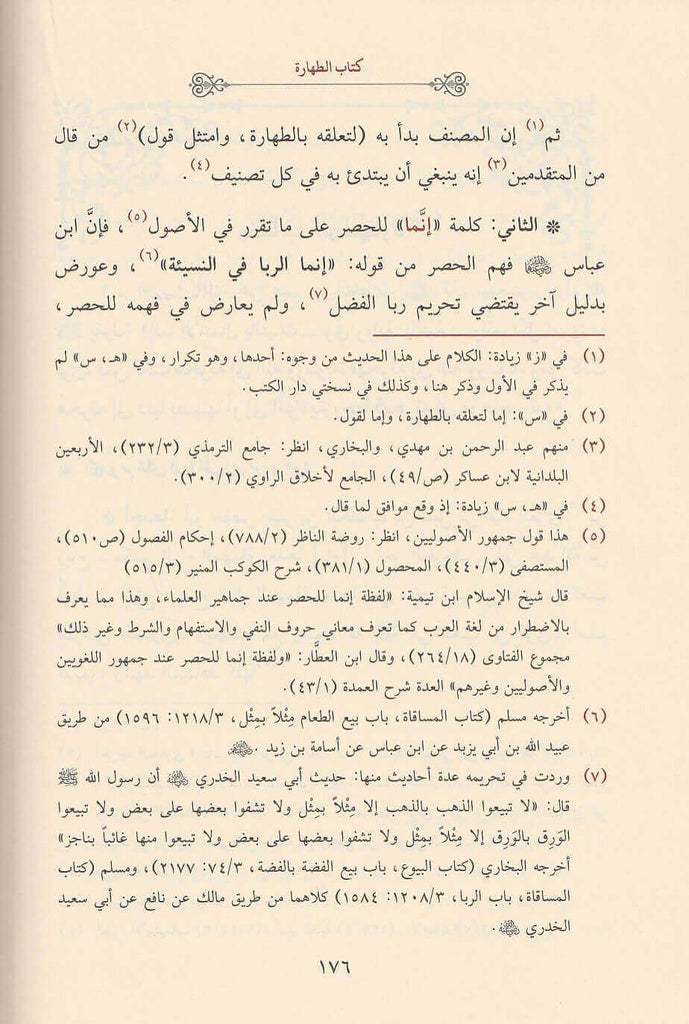 كتاب الطهارة
ثم(١) إن المصنف بدأ به (لتعلقه بالطهارة، وامتثل قول)(٢) من قال
من المتقدمين(٣) إنه ينبغي أن يبتدئ به في كل تصنيف(٤).
* الثاني: كلمة «إنَّما» للحصر على ما تقرر في الأصول(٥)، فإنَّ ابن
عباس ﵁ فهم الحصر من قوله: «إنما الربا في النسيئة»(٦)، وعورض
بدليل آخر يقتضي تحريم ربا الفضل(٧)، ولم يعارض في فهمه للحصر،
(١) في «ز» زيادة: الكلام على هذا الحديث من وجوه: أحدها، وهو تكرار، وفي «هـ، س» لم
يذكر في الأول وذكر هنا، وكذلك في نسختي دار الكتب.
(٢) في «س»: إما لتعلقه بالطهارة، وإما لقول.
(٣) منهم عبد الرحمن بن مهدي، والبخاري، انظر: جامع الترمذي (٢٣٢/٣)، الأربعين
البلدانية لابن عساكر (ص/٤٩)، الجامع لأخلاق الراوي (٣٠٠/٢).
(٤) في «هـ، س» زيادة: إذ وقع موافق لما قال.
(٥) هذا قول جمهور الأصوليين، انظر: روضة الناظر (٧٨٨/٢)، إحكام الفصول (ص٥١٠)،
المستصفى (٤٤٠/٣)، المحصول (٣٨١/١)، شرح الكوكب المنير (٥١٥/٣)
قال شيخ الإسلام ابن تيمية: «لفظة إنما للحصر عند جماهير العلماء، وهذا مما يعرف
بالاضطرار من لغة العرب كما تعرف معاني حروف النفي والاستفهام والشرط وغير ذلك»
مجموع الفتاوى (٢٦٤/١٨)، وقال ابن العطَّار: «ولفظة إنما للحصر عند جمهور اللغويين
والأصوليين وغيرهم» العدة شرح العمدة (٤٣/١).
(٦) أخرجه مسلم (كتاب المساقاة، باب بيع الطعام مِثْلاً بمِثْل، ١٢١٨/٣: ١٥٩٦) من طريق
عبيد الله بن أبي يزيد عن ابن عباس عن أسامة بن زيد ﵃.
(٧) وردت في تحريمه عدة أحاديث منها: حديث أبي سعيد الخدري ﵁ أن رسول الله ﷺ
قال: «لا تبيعوا الذهب بالذهب إلا مِثْلاً بمِثْل ولا تشفوا بعضها على بعض ولا تبيعوا
الوَرِق بالوَرِق إلا مِثْلاً بمِثْل ولا تشفوا بعضها على بعض ولا تبيعوا منها غائباً بناجز»
أخرجه البخاري (كتاب البيوع، باب بيع الفضة بالفضة، ٧٤/٣: ٢١٧٧)، ومسلم (كتاب
المساقاة، باب الربا، ١٢٠٨/٣: ١٥٨٤) كلاهما من طريق مالك عن نافع عن أبي سعيد
الخدري ﵁.
١٧٦